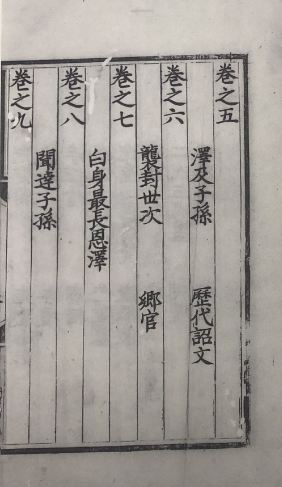 卷之五
澤及子孫 歷代詔文
卷之六
襲封世次 鄉官
卷之七
白身最長恩澤
卷之八
聞達子孫
卷之九